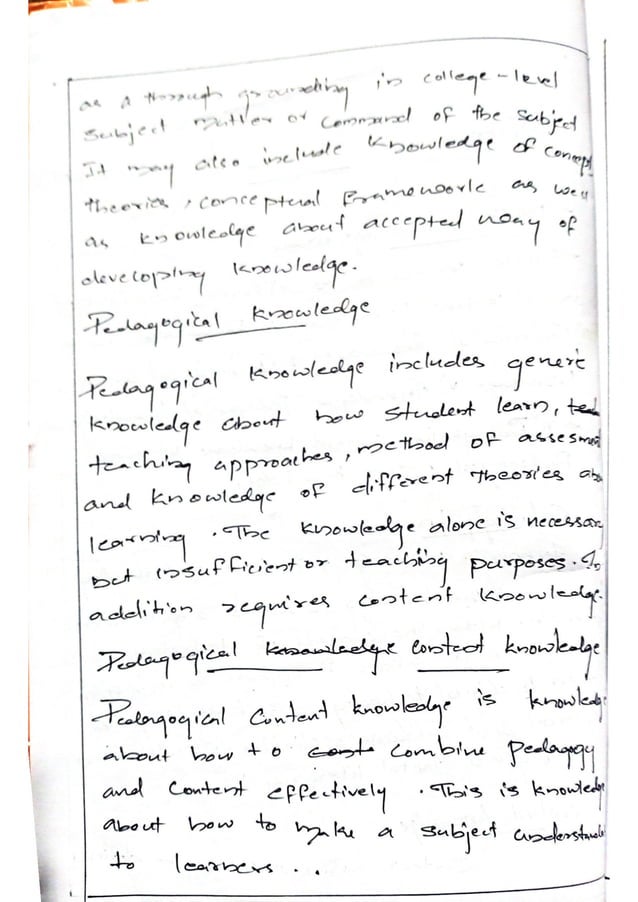 as a through grounding in college-level
subject matter or command of the subject
It may also include knowledge of concept
theories, conceptual Framework as well
as knowledge about accepted way of
developing knowledge.
Pedagogical knowledge
Pedagogical knowledge includes generic
knowledge about how student learn,
teaching approaches, method of assesment
and knowledge of different theories
learning . The knowledge alone is necessary
but insufficient or teaching purposes. In
addition requires content knowledge.
Pedagogical content knowledge
Pedagogical Content knowledge is knowledge
about how to combine pedagogy
and content effectively . This is knowledge
about how to make a subject
to learners . .